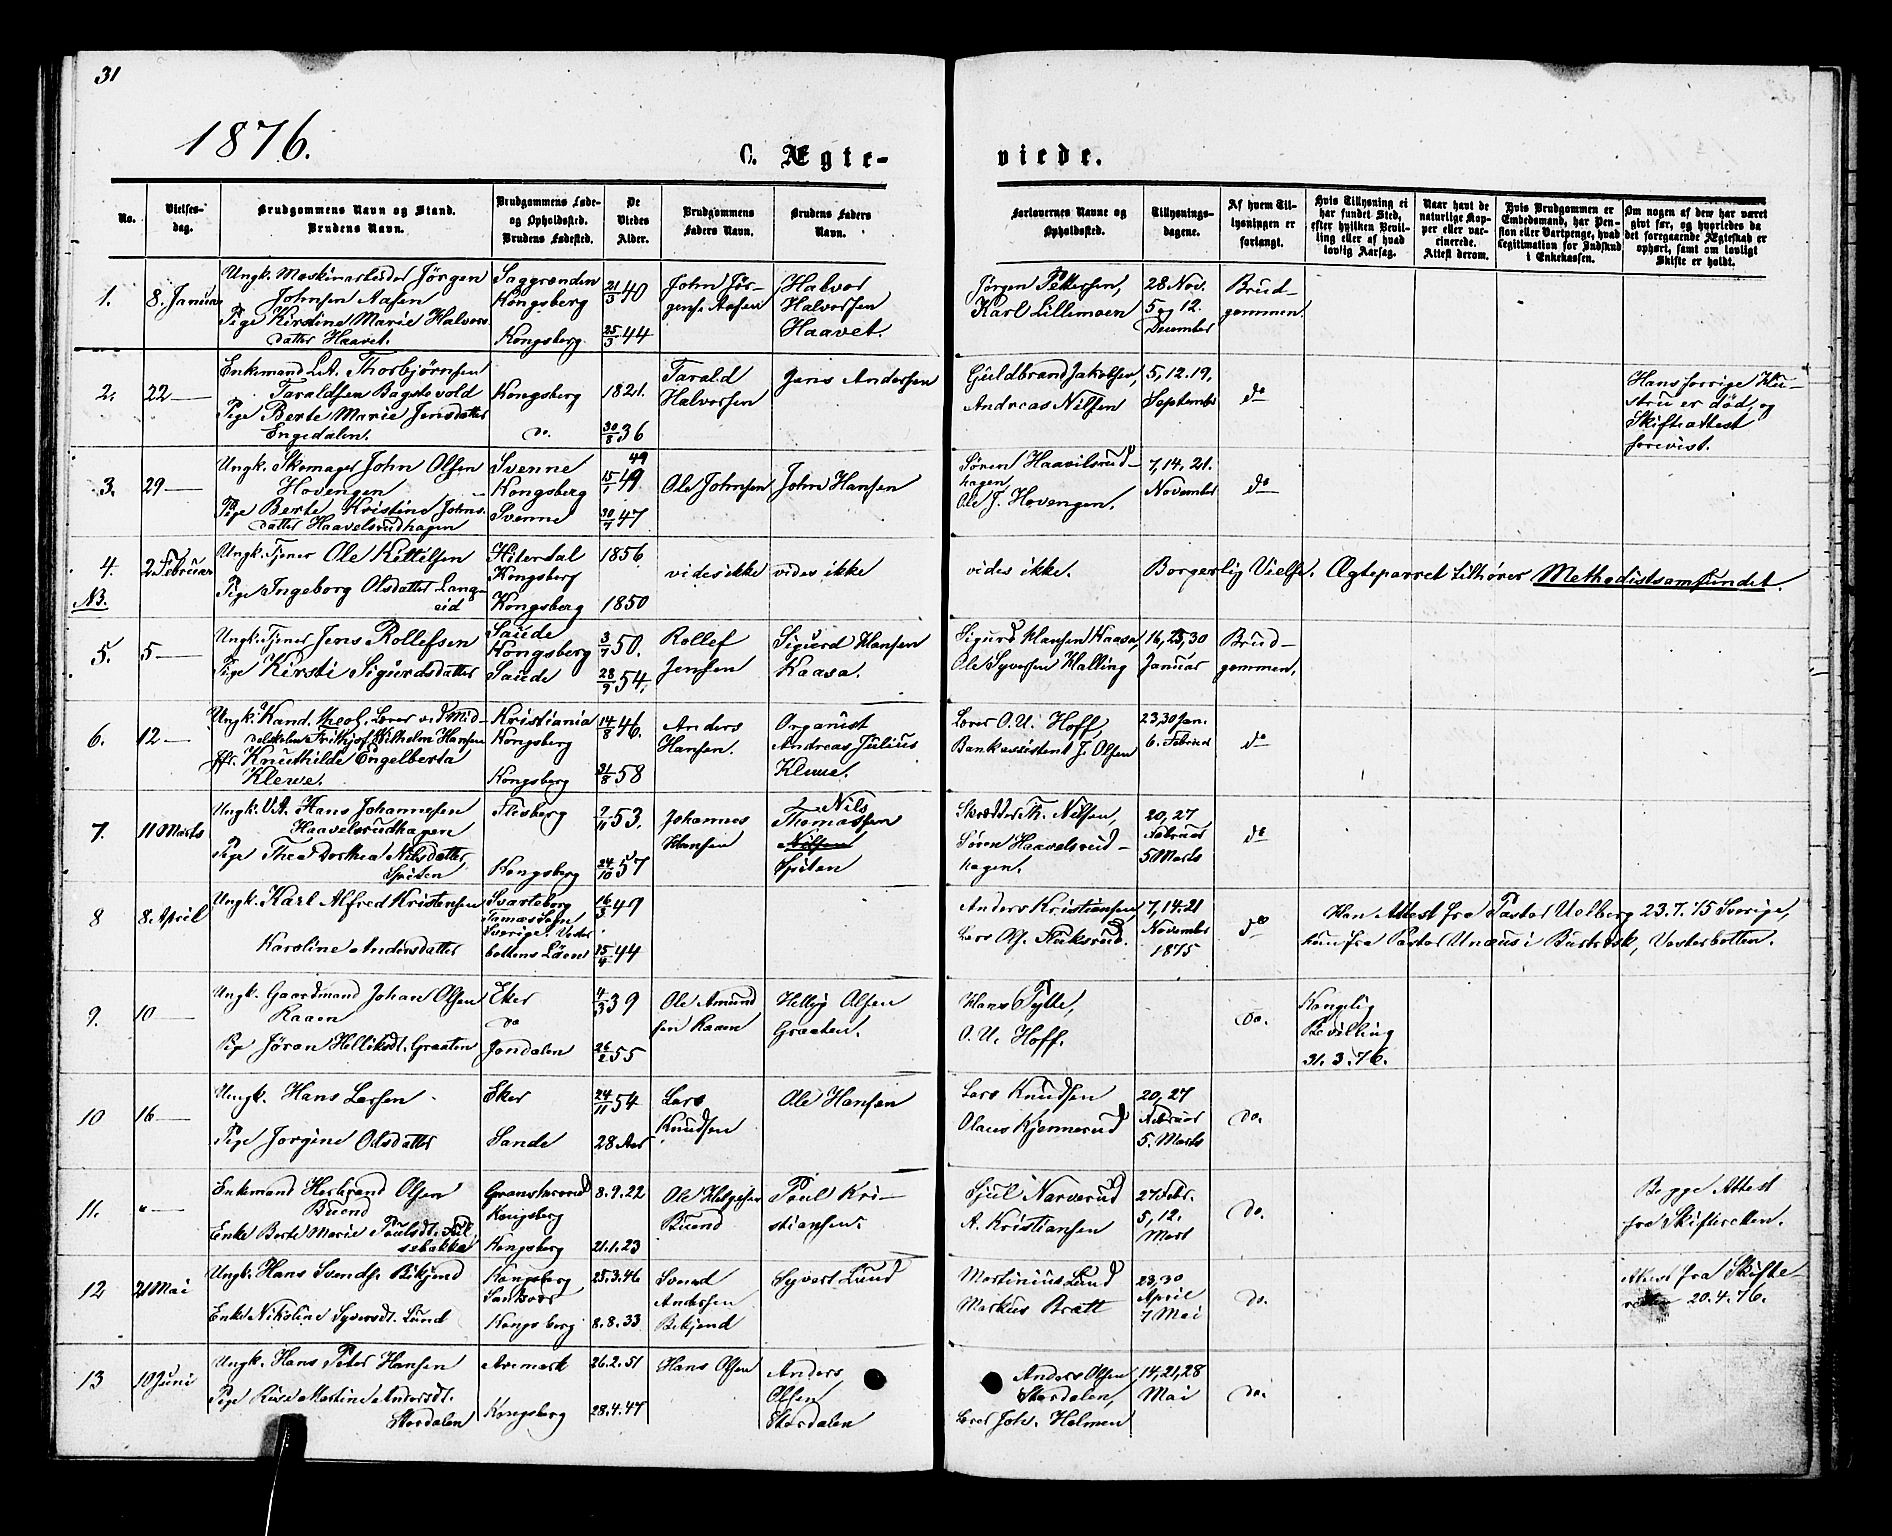 31
1876.
C. Ægte-
viede.
No.
Vielses-
dag.
Brudgommens Navn og Stand.
Brudens Navn.
Brudgommens Føde-
og Opholdssted.
Brudens Fødested.
De
Viedes
Alder.
Brudgommens
Faders Navn.
Brudens Faders
Navn.
Forlovernes Navne og
Opholdssted.
Tillysnings-
dagene.
Af hvem Til-
lysningen er
forlangt.
Hvis Tillysning ei
har fundet Sted,
efter hvilken Bevil-
ling eller af hvad
lovlig Aarsag.
Naar havt de
naturlige Kop-
per eller vac-
cinerede.
Attest derom.
Hvis Brudgommen er
Embedsmand, har Pen-
sion eller Vartpenge, hvad
Legitimation for Indskud
i Enkekassen.
Om nogen af dem har været
gift før, og hvorledes da
det foregaaende Ægteskab er
ophørt, samt om lovligt
Skifte er holdt.
1.
8. Januar
Ungk. Maskinarbeider Jörgen
Johnsen Aasen
Pige Kirstine Marie Halvors
datter Haavet.
Saggrenden
Kongsberg
Kongsberg.
21/3 40
25/3 44
John Jör-
gense Aasen
Halvor
Halvorsen
Haavet.
Jörgen Pettersen,
Karl Lillemoen
28 Nov.
5 og 12.
December
Brud-
gommen.
2.
22 —
Enkemand L.A. Thorbjørnsen
Taraldsen Bagstevold
Pige Berte Marie Jensdatter
Engedalen.
Kongsberg
do.
1821.
30/8 36
Tarald
Halvorsen
Jens Andersen
Guldbrand Jakobsen,
Andreas Nilsen
5, 12. 19,
September
do
Hans forrige Hu-
stru er død, og
Skifteattest
forevist.
3.
29 —
Ungk. Skomager John Olsen
Hovengen
Pige Berte Kristine Johns.
datter Haavelsrudhagen
Svenne
Kongsberg
Svenne
49
15/1 49
30/7 47
Ole Johnsen
John Hansen
Søren Haavilsrud-
hagen
Ole J. Hovengen.
7, 14, 21.
November
do
4.
NB.
2 Februar
Ungk. Tjener Ole Kittilsen
Pige Ingeborg Olsdatter Lang-
eid
Hiterdal
Kongsberg
Kongsberg
1856
1850
vides ikke
vides ikke
vides ikke.
Borgerlig Vielse. Ægteparret tilhører Methodistsamfundet.
5.
5 —
Ungk. Tjener Jens Rollefsen
Pige Kirsti Sigurdsdatter
Saude
Kongsberg
Saude
3/7 50.
28/9 54,
Rollef
Jensen
Sigurd Hansen
Kaasa.
Sigurd Hansen Kaasa,
Ole Syversen Halling
16, 23, 30
Januar
Brud-
gommen.
6.
12 —
Ungk. Kand. theol. Lærer ved Mid-
delskolen Frithjof Wilhelm Hansen
ffr. Knuthilde Engelberta
Klewe.
Kristiania
Kongsberg
Kongsberg
14/8 46.
31/8 58
Anders
Hansen.
Organist
Andreas Julius
Klewe.
Lærer O. U. Hoff,
Bankassistent J. Olsen
23, 30 Jan.
6. Februar
do
7.
11 Marts
Ungk. V.A. Hans Johannesen
Haavelsrudhagen
Pige Thea Dorthea Nilsdatter,
Spiten
Flesberg
Kongsberg
9/11 53.
24/10 57
Johannes
Hansen
Nils
Thomassen
Nilsen
Spiten
Skrædder Th. Nilsen,
Søren Haavelsrud-
hagen.
20, 27
Februar
5 Marts
do
8
8. April
Ungk. Karl Alfred Kristensen
Karoline Andersdatter
Svarteborg
Sverige. Vester
bottens Läen
16/3 49
15/4 44
Anders Kristiansen
Lars Flaksrud.
7, 14. 21
November
1875
do
Han Attest fra Pastor Uelberg 23. 7. 75 Sverige,
hun fra Pastor Unæus i Burträsk, Vesterbotten.
9.
10 —
Ungk. Gaardmand Johan Olsen
Raaen
Pige Jøran Helliksdt. Graaten
Eker
do
Jondalen
4/3 39
26/2 55
Ole Amund
sen Raaen
Hellig Olsen
Graaten.
Hans Tylle,
O. U. Hoff.
do.
Kongelig
Bevilling
31. 3. 76.
10
16 —
Ungk. Hans Larsen
Pige Jorgine Olsdatter
Eker
Sande
24/11 54
28 Aar
Lars
Knudsen
Ole Hansen
Lars Knudsen
Olaus Kjennerud
20, 27
Februar
5. Marts
do.
11.
" —
Enkemand Herbrand Olsen
Buend
Enke Berte Marie Poulsdt.
sebakke
Kongsberg
Kongsberg
8. 9. 22
21. 1. 23
Ole Helgesen
Buend
Poul Kri-
stiansen.
Sjul Narverud
A. Kristiansen
27 Febr.
5, 12.
Mart
do.
Begge Attest
fra Skifteretten.
12
21 Mai
Ungk. Hans Svends. Bikjend
Enke Nikoline Syversdt. Lund
Kongsberg
Kongsberg
25. 3. 46
8. 8. 33
Svend
Andersen
Bikjend
Syvert Lund
Martinius Lund
Markus Bratt
23, 30
April
7 Mai
do.
Attest fra Skifte-
retten 20. 4. 76.
13
10 Juni
Ungk. Hans Peter Hansen
Pige Rise Martine Andersdt.
Stordalen
Aremark
Kongsberg
26. 2. 51
28. 4. 47
Hans Olsen
Anders
Olsen
Stordalen
Anders Olsen
Stordalen,
Lærer Joh. Holmen
14, 21, 28
Mai
do.